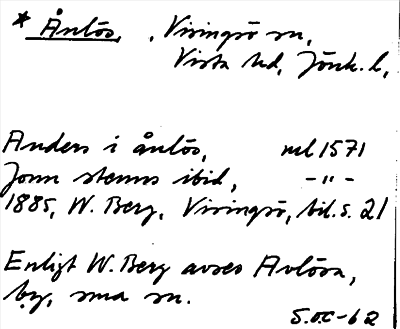 * Ånlös, , Visingsö sn,
Vista hd, Jönk. l,
Anders i ånlös, ml 1571
Jonn stenns ibid, -"-
1885, W. Berg, Visingsö, bil. s. 21
Enligt W. Berg avses Avlösa,
by, sma sn.
S. OC-62